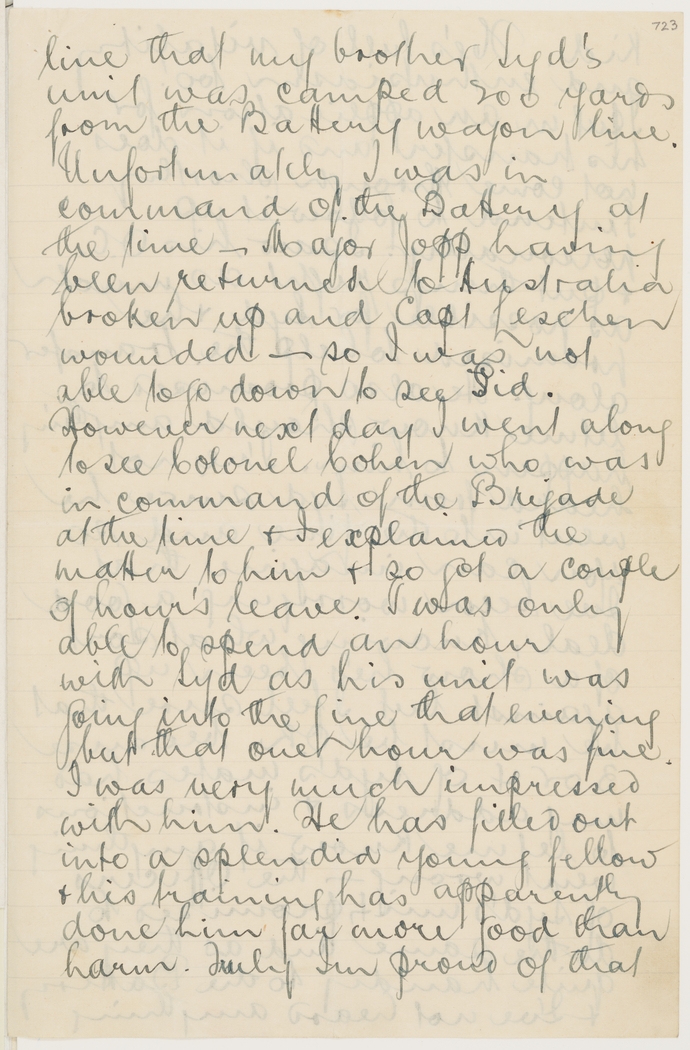 723
line that my brother Syd's
unit was camped 200 yards
from the Battery wagon line.
Unfortunately I was in
command of the Battery at
the time — Major Jopp having
been returned to Australia
broken up and Capt Leschen
wounded — so I was not
able to go down to see Sid.
However next day I went along
to see Colonel Cohen who was
in command of the Brigade
at the time & I explained the
matter to him & so got a couple
of hour's leave. I was only
able to spend an hour
with Syd as his unit was
going into the line that evening
but that one hour was fine.
I was very much impressed
with him. He has filled out
into a splendid young fellow
& his training has apparently
done him far more good than
harm. Truly I'm proud of that